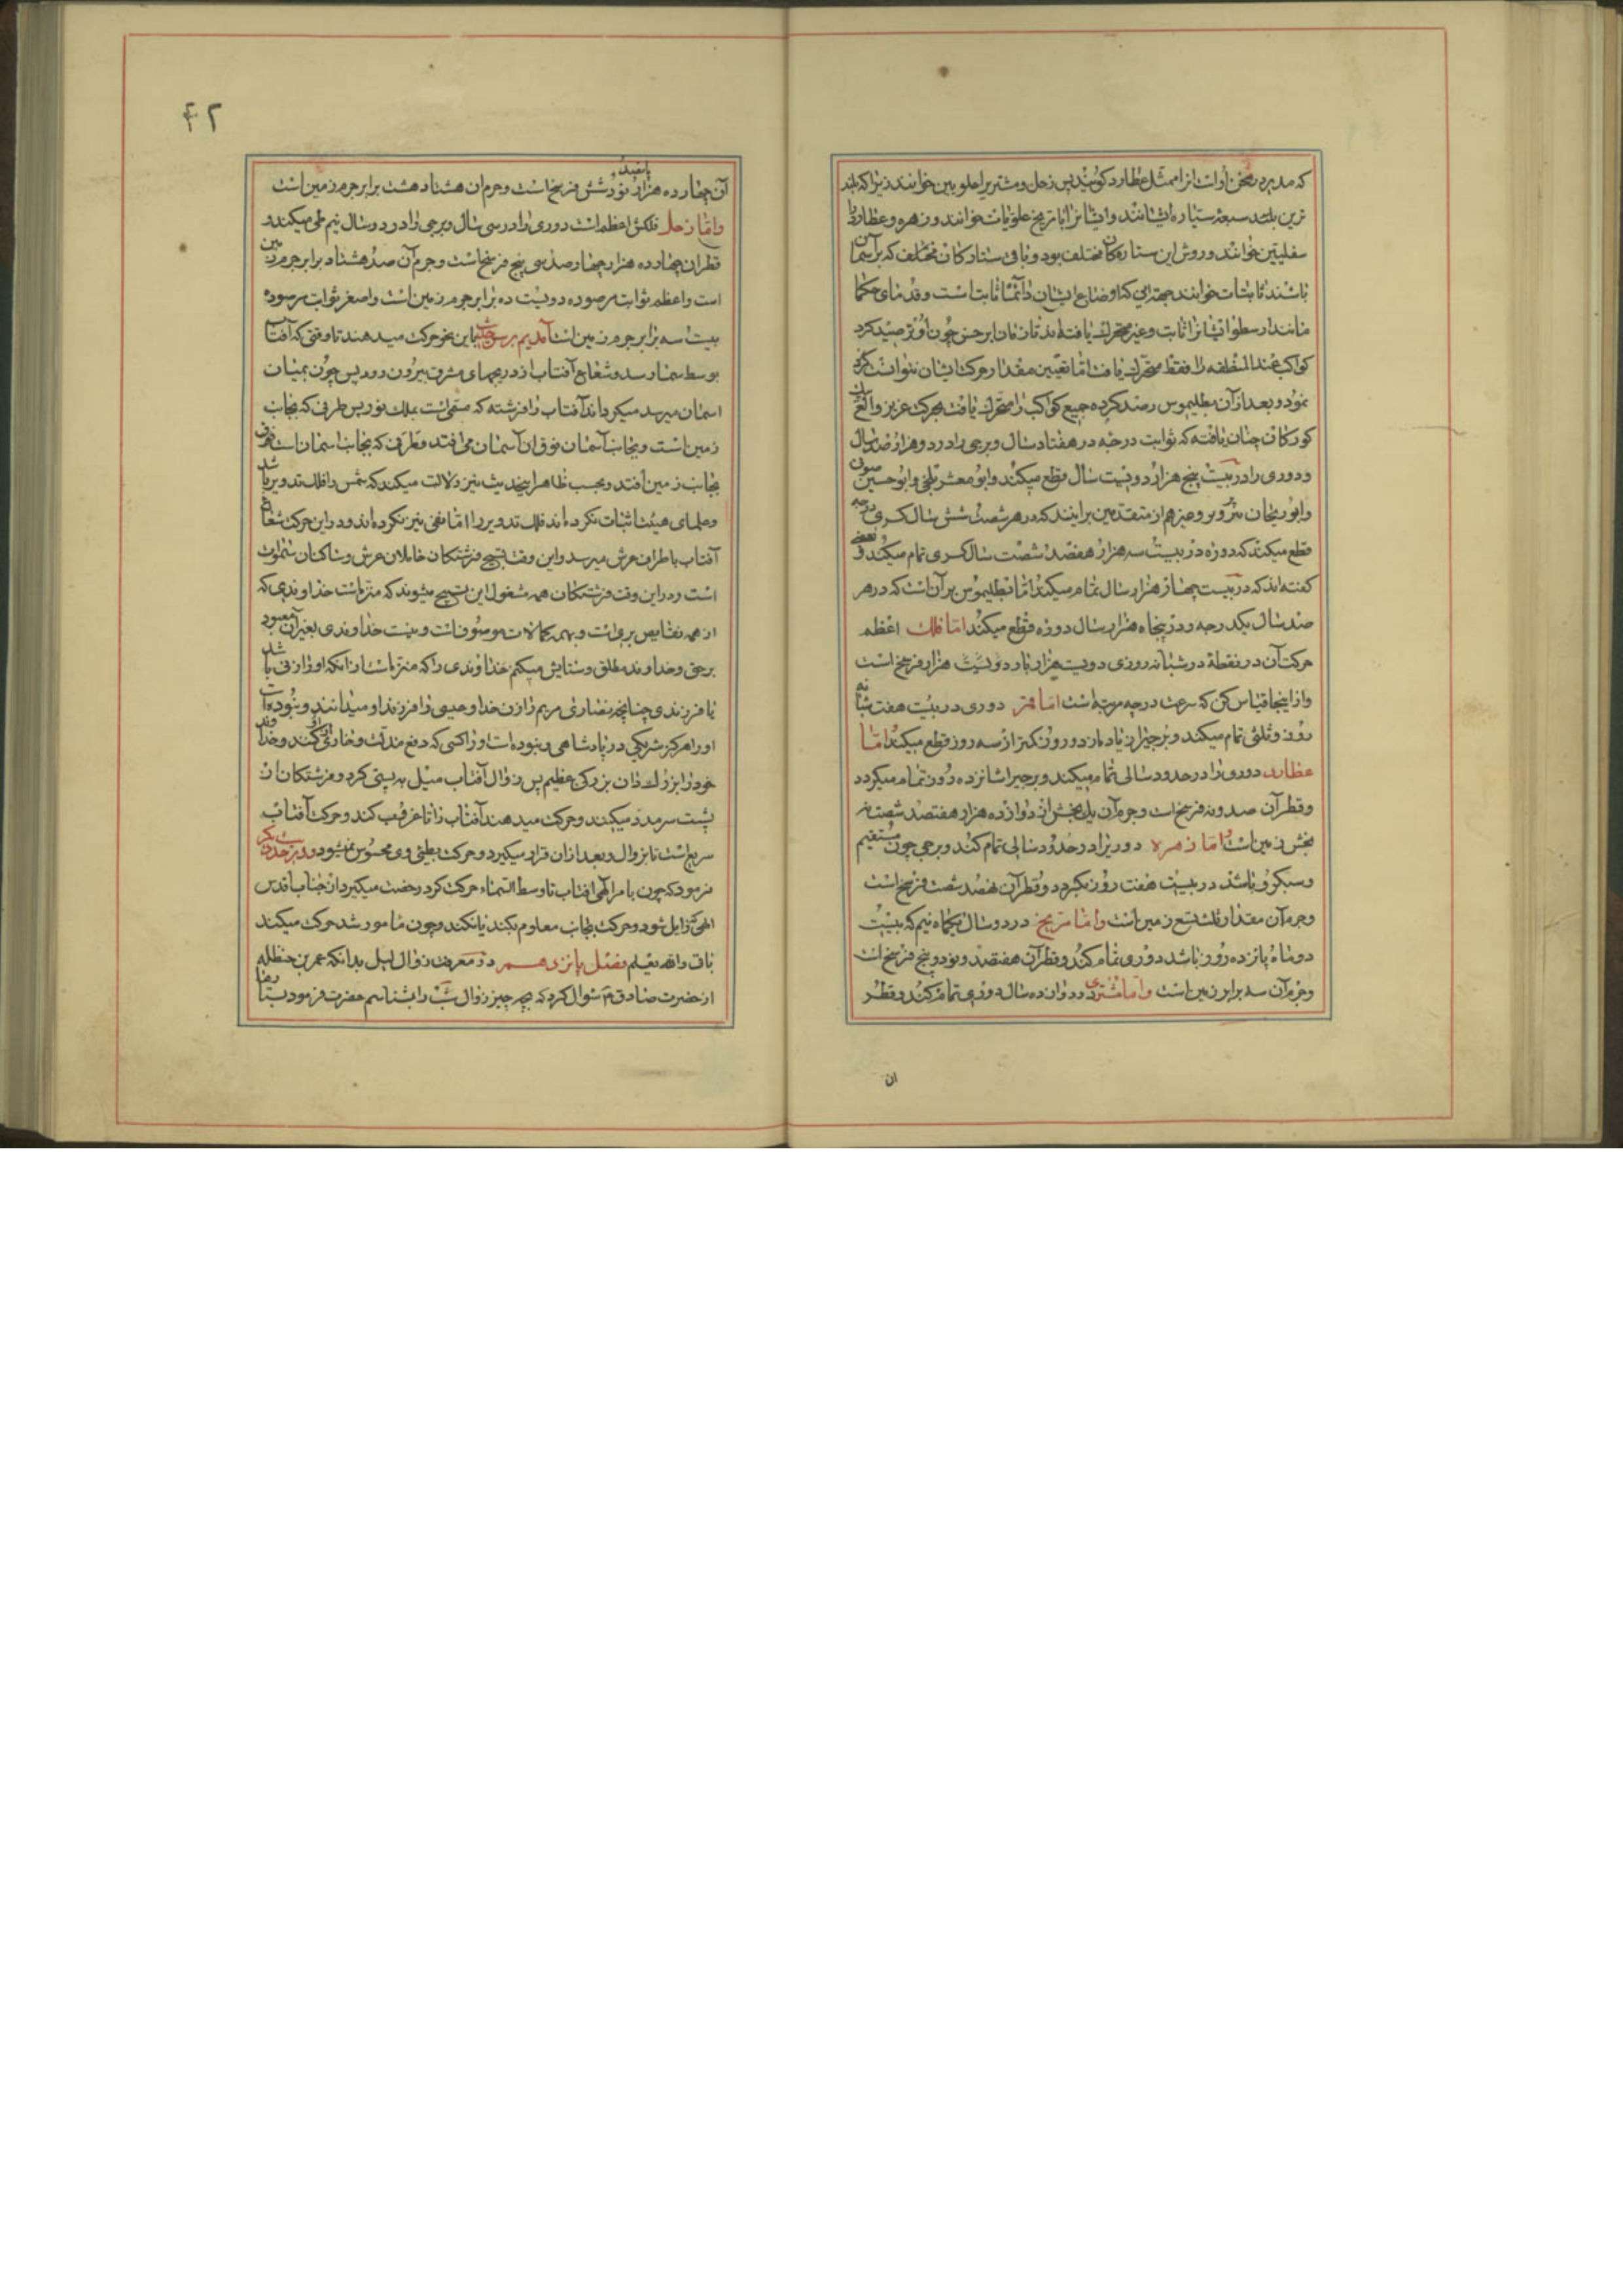 که مدیره در ثخن او است انرا ممثل عطارد کویند پس زحل و مشتری را علویین خوانند زیرا که بلند
ترین بلند سبعه سیاره ایشانند وایشانرا با مریخ علویات خوانند و زهره و عطارد را
سفلیین خوانند و روش این ستارەکان مختلف بود و باقی ستارکان مختلف که بر آسمان
باشند ثابتات خوانند بجهة آنکه اوضاع ایشان دائما ثابتا است و قدمای حکما
مانند ارسطو ایشانرا ثابت و غیر متحرک یافته اند تا زمان ابرخس چون او ترصید کرد
کواکب عند المنطقه را فقط متحرک یافت اما تعیین مقدار حرکت ایشان نتوانست کرد
نمود و بعد از آن بطلیموس رصد کرده جمیع کواکب را متحرک یافت بحرکت عزیز و الغ
کورکان چنان یافته که ثوابت درجه در هفتاد سال و برجی را در دو هزار و صد سال
و دوری را در بیست پنج هزار دویست سال قطع میکند و ابو معشر بلخی و ابو حسین صوفی
و ابوریحان بیرونی و غیرهم از متقدمین برانند که در هر شصت شش سال کسری درجه
قطع میکند که دوره در بیست سه هزار هفصد شصت سال کسری تمام میکند و بعضی
کفته اند که در بیست چهار هزار سال تمام میکند اما بطلیموس بر آن است که در هر
صد سال یکدرجه و در پنجاه هزار سال دوره قطع میکند اما فلک اعظم
حرکت آن در نقطة در شبانه روزی دویست هزار بار دویست هزار فرسخ است
و از اینجا قیاس کن که سرعت در چه مرتبه است اما قمر دوری در بیست هفت شبانه
روز و ثلثی تمام میکند و برجیرا زیاده از دو روز کمتر از سه روز قطع میکند اما
عطارد دوری را در حدود سالی تمام میکند و برجیرا شانزده روز تمام میکردد
و قطر آن صد و نه فرسخ است و جرم آن یک بخش از دوازده هزار هفتصد شصت نه
بخش زمین است و اما زهره دوریرا در حدود سالی تمام کند و برجی چون مستقیم
و سبکرو باشد در بیست هفت روز بکردد و قطر آن نهصد شصت فرسخ است
و جرم آن مقدار ثلث تسع زمین است و اما مریخ در دو سال یکماه نیم که بیست
دو ماه پانزده روز باشد دوری تمام کند و قطر آن هفتصد و نود و پنج فرسخ است
و جرم آن سه برابر زمین است و اما مشتری در دوازده سال دوری تمام کند و قطر
ان
۴۲
آن چهارده هزار پانصد و نود و شش فرسخ است و جرم ان هشتاد هشت برابر جرم زمین است
و اما زحل فلکش اعظم است دوری را در سی سال و برجی را در دو سال نیم طی میکند و
قطر ان چهارده هزار چهار صد سی پنج فرسخ است و جرم آن صد هشتاد برابر جرم زمین
است و اعظم ثوابت مرصوده دویست ده برابر جرم زمین است و اصغر ثوابت مرصوده
بیست سه برابر جرم زمین است آمدیم بر سر حدیث باین نحو حرکت میدهند تا وقتی که آفتاب
بوسط سما رسد و شعاع آفتاب از دریچهای مشرف بیرون رود پس چون بمیان
اسمان میرسد میکرداند آفتاب را فرشته که مسمی است بملک نور پس طرفی که بجانب
زمین است و بجانب آسمان فوق ان آسمان می افتد و طرفی که بجانب اسمان است
بجانب زمین افتد و بحسب ظاهر اینحدیث نیز دلالت میکند که شمس را فلک تدویر باشد
و علمای هیئت اثبات نکرده اند فلک تدویر را اما نفی نیز نکرده اند و در این حرکت شعاع
آفتاب باطراف عرش میرسد و این وقت تسبیح فرشتکان حاملان عرش و ساکنان سموات
است و در این وقت فرشتکان همه مشغول این تسبیح میشوند که منزه است خداوندی که
از همه نقایص بری است و بهمه کمالات موصوف است و نیست خداوندی بغیر آن معبود
بر حق و خداوند مطلق و ستایش میکنم خداوندی را که منزه است از انکه او را زنی باشد
یا فرزندی چنانچه نصاری مریم را زن خدا و عیسی را فرزند او میدانند و نبوده است
او را هرکز شریکی در پادشاهی و نبوده است او را کسی که دفع مذلت و خاری از او کند و خدا
خود را بزرک دان بزرکی عظیم پس زوال آفتاب میل به پستی کرد و فرشتکان از
پشت سر مدد میکنند و حرکت میدهند آفتاب را تا غروب کند و حرکت آفتاب
سریع است تا بزوال و بعد از ان قرار میکیرد و حرکت بطیئی وی محسوس نمیشود و در حدیث دیکر
فرمود که چون بامر الهی افتاب تا وسط السماء حرکت کرد رخصت میکیرد از جناب اقدس
الهی که زایل شود و حرکت بجانب معلوم بکند یا نکند و چون مامور شد حرکت میکند
باقی و الله یعلم فصل پانزدهم در معرفت زوال لیل بدانکه عمر بن حنظله
از حضرت صادق م سؤال کرد که بچه چیز زوال شب را بشناسم حضرت فرمود